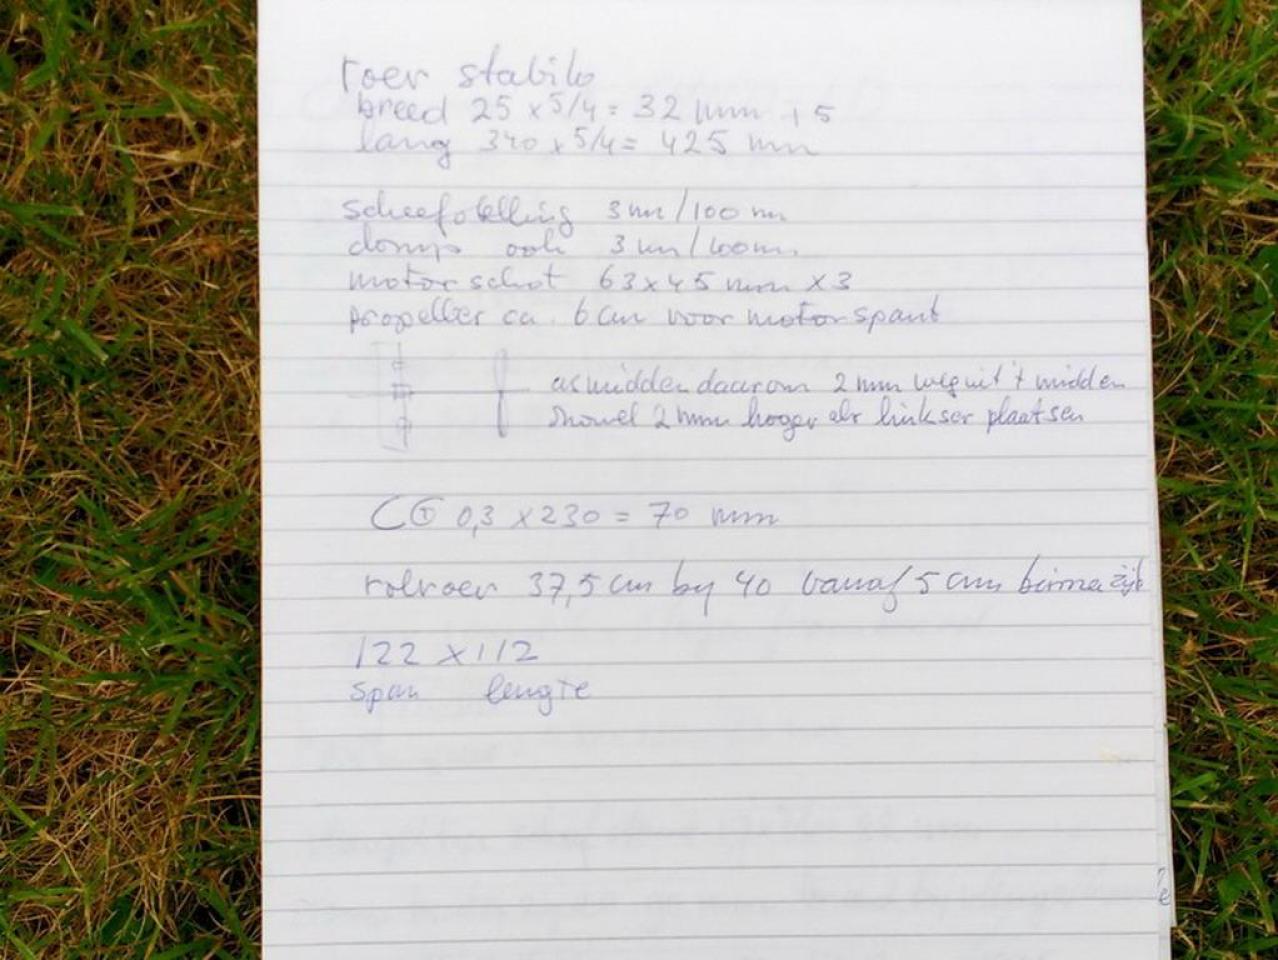 roer stabilo
breed 25 x 5/4 = 32 mm + 5
lang 340 x 5/4 = 425 mm
scheefstelling 3 mm / 100 mm
domp ook 3 mm / 100 mm
motorschot 63 x 45 mm x 3
propeller ca. 6 cm voor motorspant
as midden daarom 2 mm weg uit 't midden
zowel 2 mm hoger als linkser plaatsen
0,3 x 230 = 70 mm
rolroer 37,5 cm by 40 vanaf 5 cm binnenzijde
122 x 112
span lengte